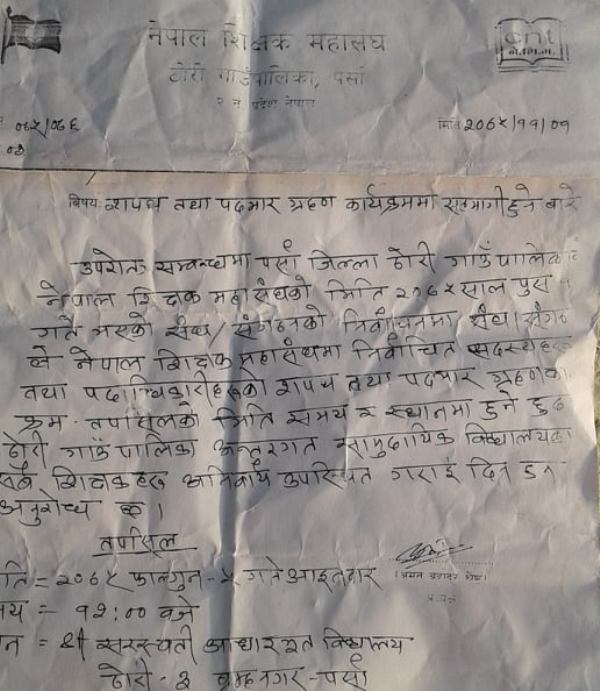 नेपाल शिक्षक महासंघ
cnt
ठोरी गाउँपालिका, पर्सा
२ नं प्रदेश नेपाल
०७५/०७६
मिति २०७५/११/०१
विषय: शपथ तथा पदभार ग्रहण कार्यक्रममा सहभागी हुने बारे
उपरोक्त सम्बन्धमा पर्सा जिल्ला ठोरी गाउँपालिका
नेपाल शिक्षक महासंघको मिति २०७५ साल पुस
गते भएको संघ/संगठनको निर्वाचनमा संघ/संगठ
ले नेपाल शिक्षक महासंघमा निर्वाचित सदस्यहरु
तथा पदाधिकारीहरुको शपथ तथा पदभार ग्रहणका
क्रम तपसिलको मिति समय र स्थानमा हुने हुदा
ठोरी गाउँपालिका अन्तरगत सामुदायिक विद्यालयका
शिक्षकहरु अनिवार्य उपस्थित गराई दिन हुन
अनुरोध छ।
तपसिल
ति = २०७५ फाल्गुन - ५ गते आइतवार
मय = १२:०० बजे
न = श्री सरस्वती आधारभूत विद्यालय
ठोरी - ३ ब्रम्हनगर - पर्सा